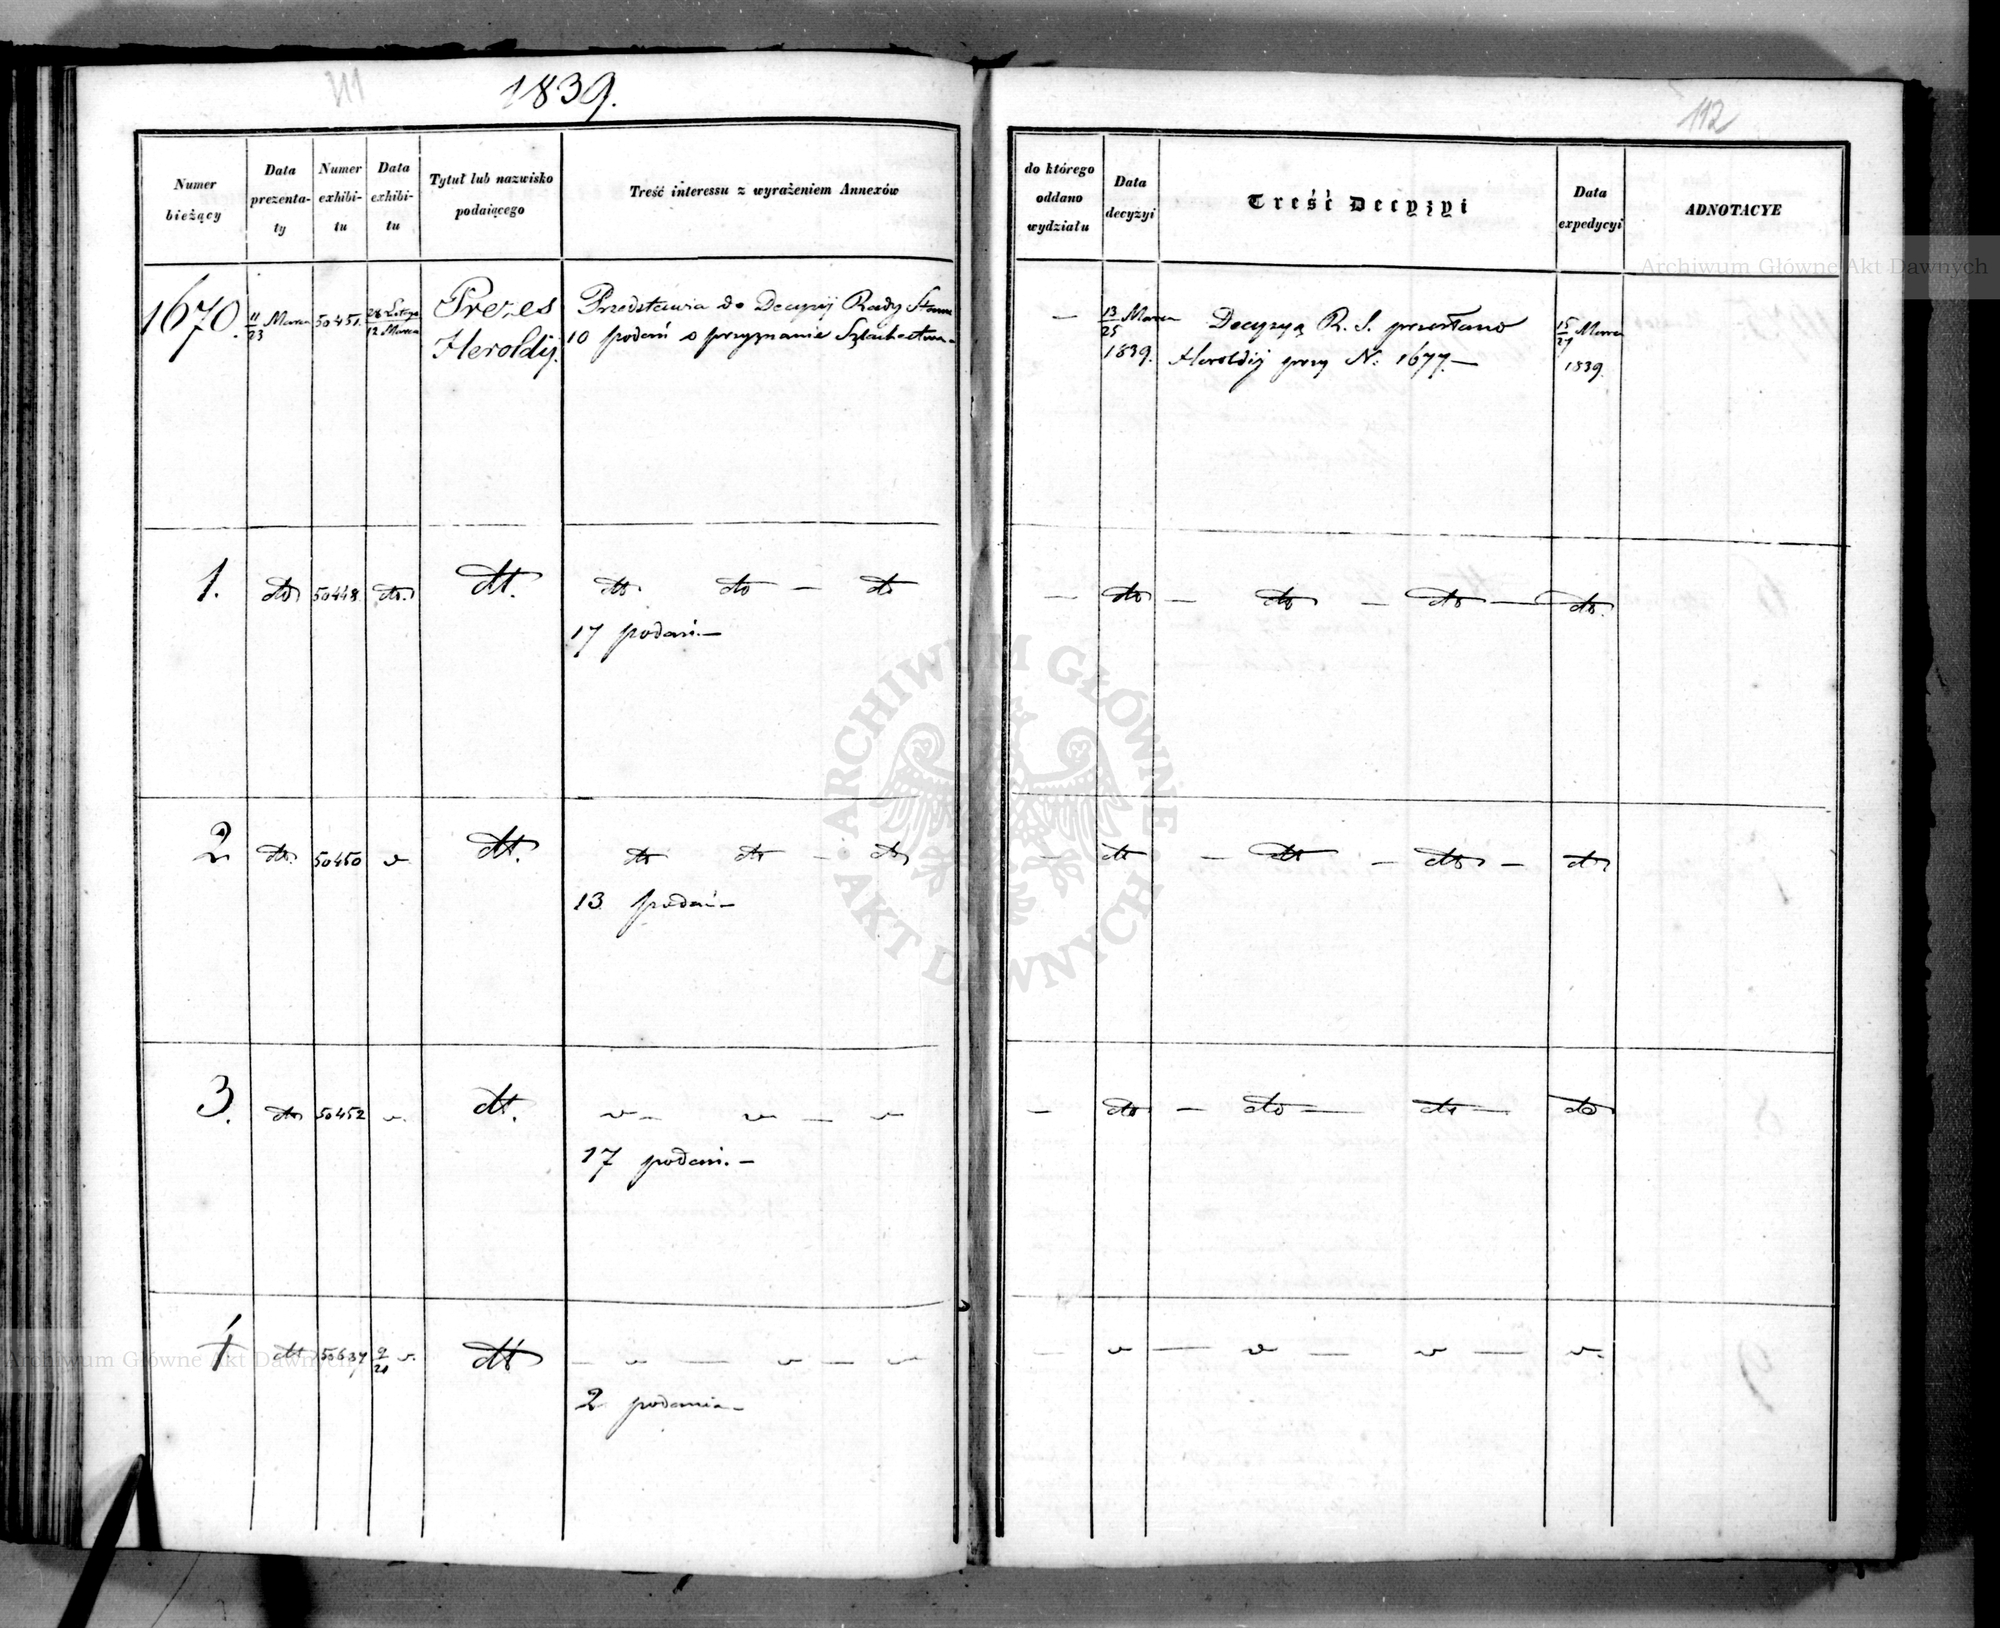 111
1839.
Numer bieżący
Data prezenta-ty
Numer exhibi-tu
Data exhibi-tu
Tytuł lub nazwisko podaiącego
Treść interessu z wyrażeniem Annexów
1670.
11/23 Marca
50451.
28 Lutego/12 Marca
Prezes
Heroldij.
Przedstawia do Decyzij Rady Stanu
10 podań o przyznanie Szlachectwa.
1.
dto
50448.
dto.
dt.
dto. dto — dto
17 podań. —
2
dto.
50450
v
dt.
dto dto — dto
13 podań —
3.
dto
50452
v.
dt.
v — v — v
17 podań. —
4
dt
9/21 v.
dto
— v — v — v
2 podania —
112
do którego oddano wydziału
Data decyzyi
Treść Decyzyi
Data expedycyi
ADNOTACYE
—
13/25 Marca
1839.
Decyzyą R. S. przesłano
Heroldij przy N: 1677. —
15/27 Marca
1839.
— dto — dto — dto — dto.
— dt — dto — dto — dto
— dto — dto — dto — dto
— v — v — v — v.
Archiwum Główne Akt Dawnych
ARCHIWUM GŁÓWNE • AKT DAWNYCH •
Archiwum Główne Akt Dawnych